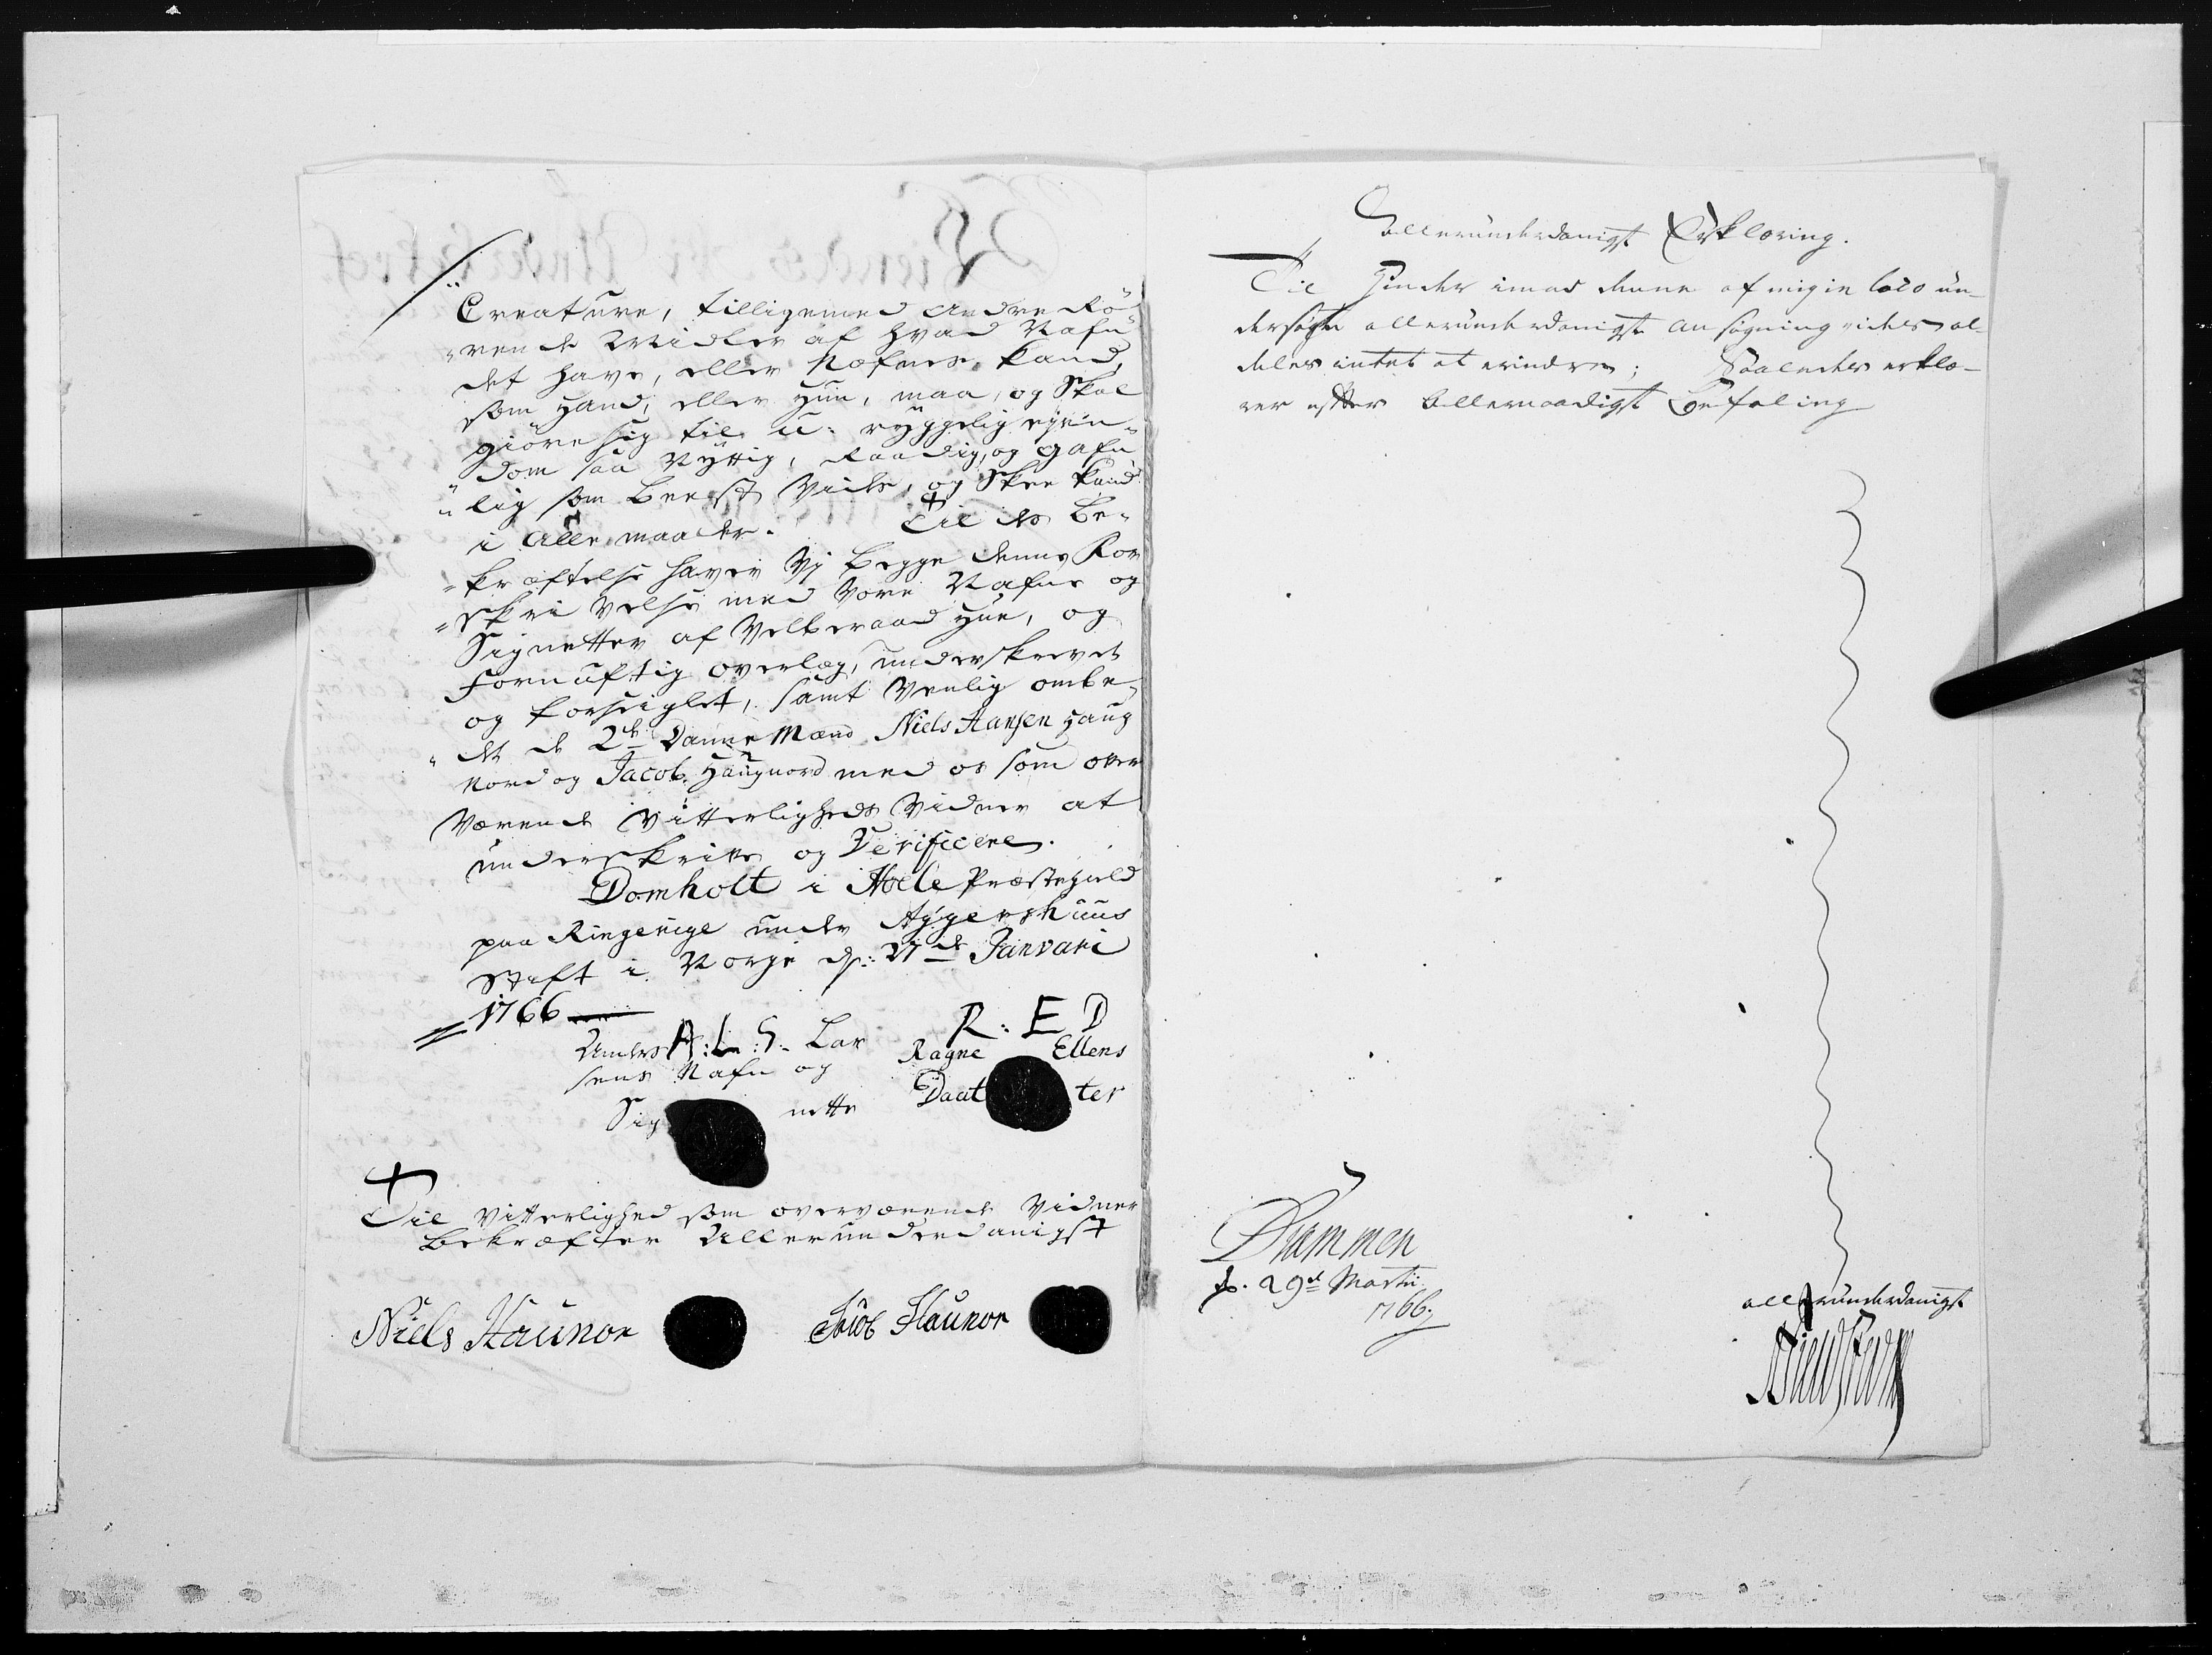 Creature, tilligemed andre Rö-
rende Midler af hvad Nafn
det have, eller Næfnes kand,
som hand, eller hun, maa, og Skal
giöre sig til u-ryggelig eyen-
dom saa Nyttig, Raadig, og gafn
lig som beest Vides, og Skee kand
i Alle maader. Til des Be-
kræftelse haver Vj begge denne For
skrivelse med Vore Nafne og
Signetter af Velberaad Hue, og
Fornuftig overlæg, underskrevet
og forseiglet, samt Venlig ombe-
det de 2de Danne Mænd Niels Hansen Haug
Nord og Jacob Haugnord med os som over
Værende Vitterligheds Vidner at
underskrive og Verificere.
Domholt i Hole Præstegield
paa Ringerige under Aggershuus
Stift i Norge d: 27de Janvari
1766
Anders A: L: S. Lar
sens Nafn og
Sig nette
R: E D
Ragne Ellens
Daat ter
Til Vitterlighed som overværende Vidner
bekræfter Allerunderdanigst
Niels Haunor Jacob Haunor
Allerunderdanigst Erklæring.
Til Hinder imod denne af mig in loco un-
dersøgte allerunderdanigste ansøgning vides al-
deles intet at erindre; Saaledes erklæ-
rer efter Allernaadigst Befaling
Drammen
d. 29de Martii
1766
allerunderdanigst